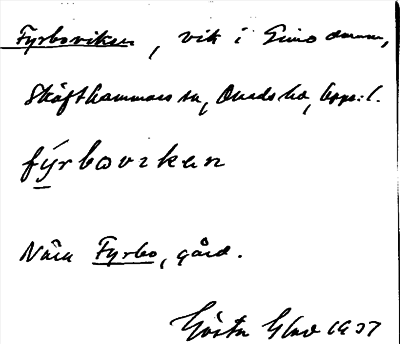 Fyrboviken, vik i Gimo damm,
Skäfthammars sn, Oland hd, Upps. l.
fýrbovikan
Nära Fyrbo, gård.
Gösta 1937